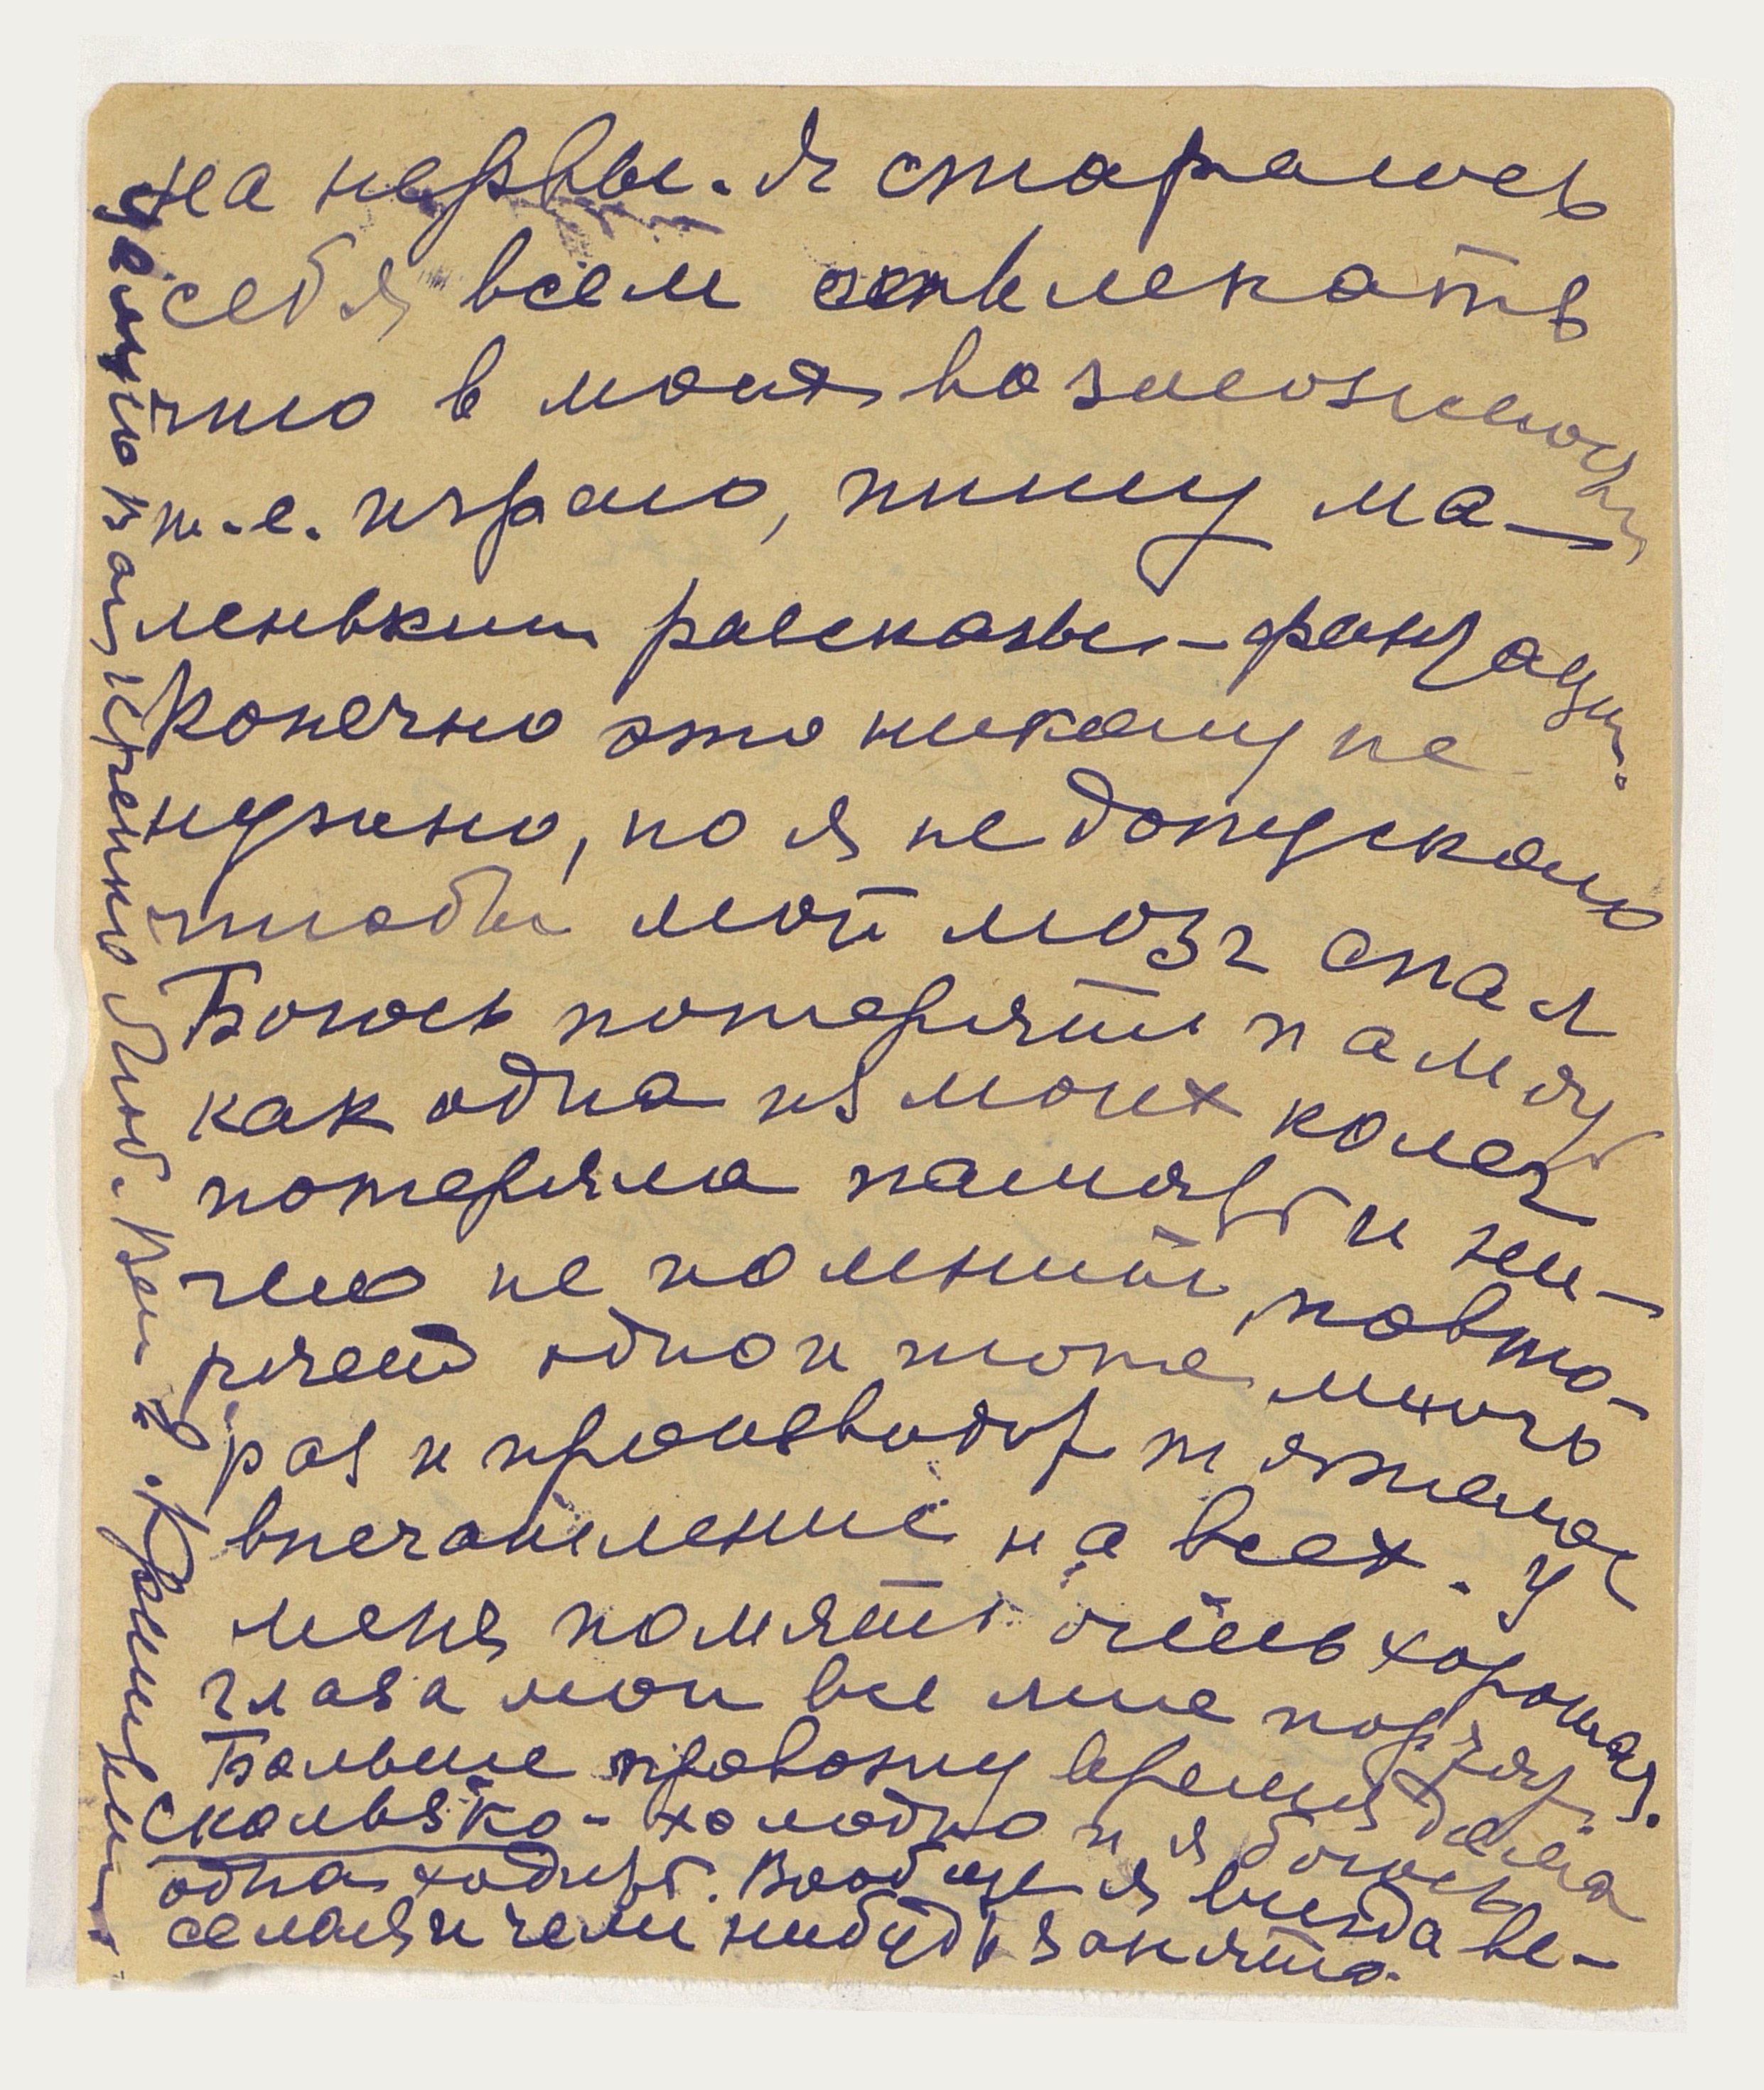 на нервы. Я стараюсь
себя всем отвлекать
что в моих возможностях
т.-е. играю, пишу ма-
ленькии рассказы-фантазии.
Конечно это никому не
нужно, но я не допускаю
чтобы мой мозг спал
Боюсь потерять память
как одна из моих колег
потеряла память и ни-
чего не помнит, повто-
ряет одно и тоже много
раз и производит тяжелое
впечатление на всех. У
меня помять очень хорошая.
глаза мои все мне портят.
Больше провожу время дома
скользко - холодно и я боюсь
одна ходить. Вообще я всегда ве-
селая и чем нибудь занята.
искренно Люб. Вас